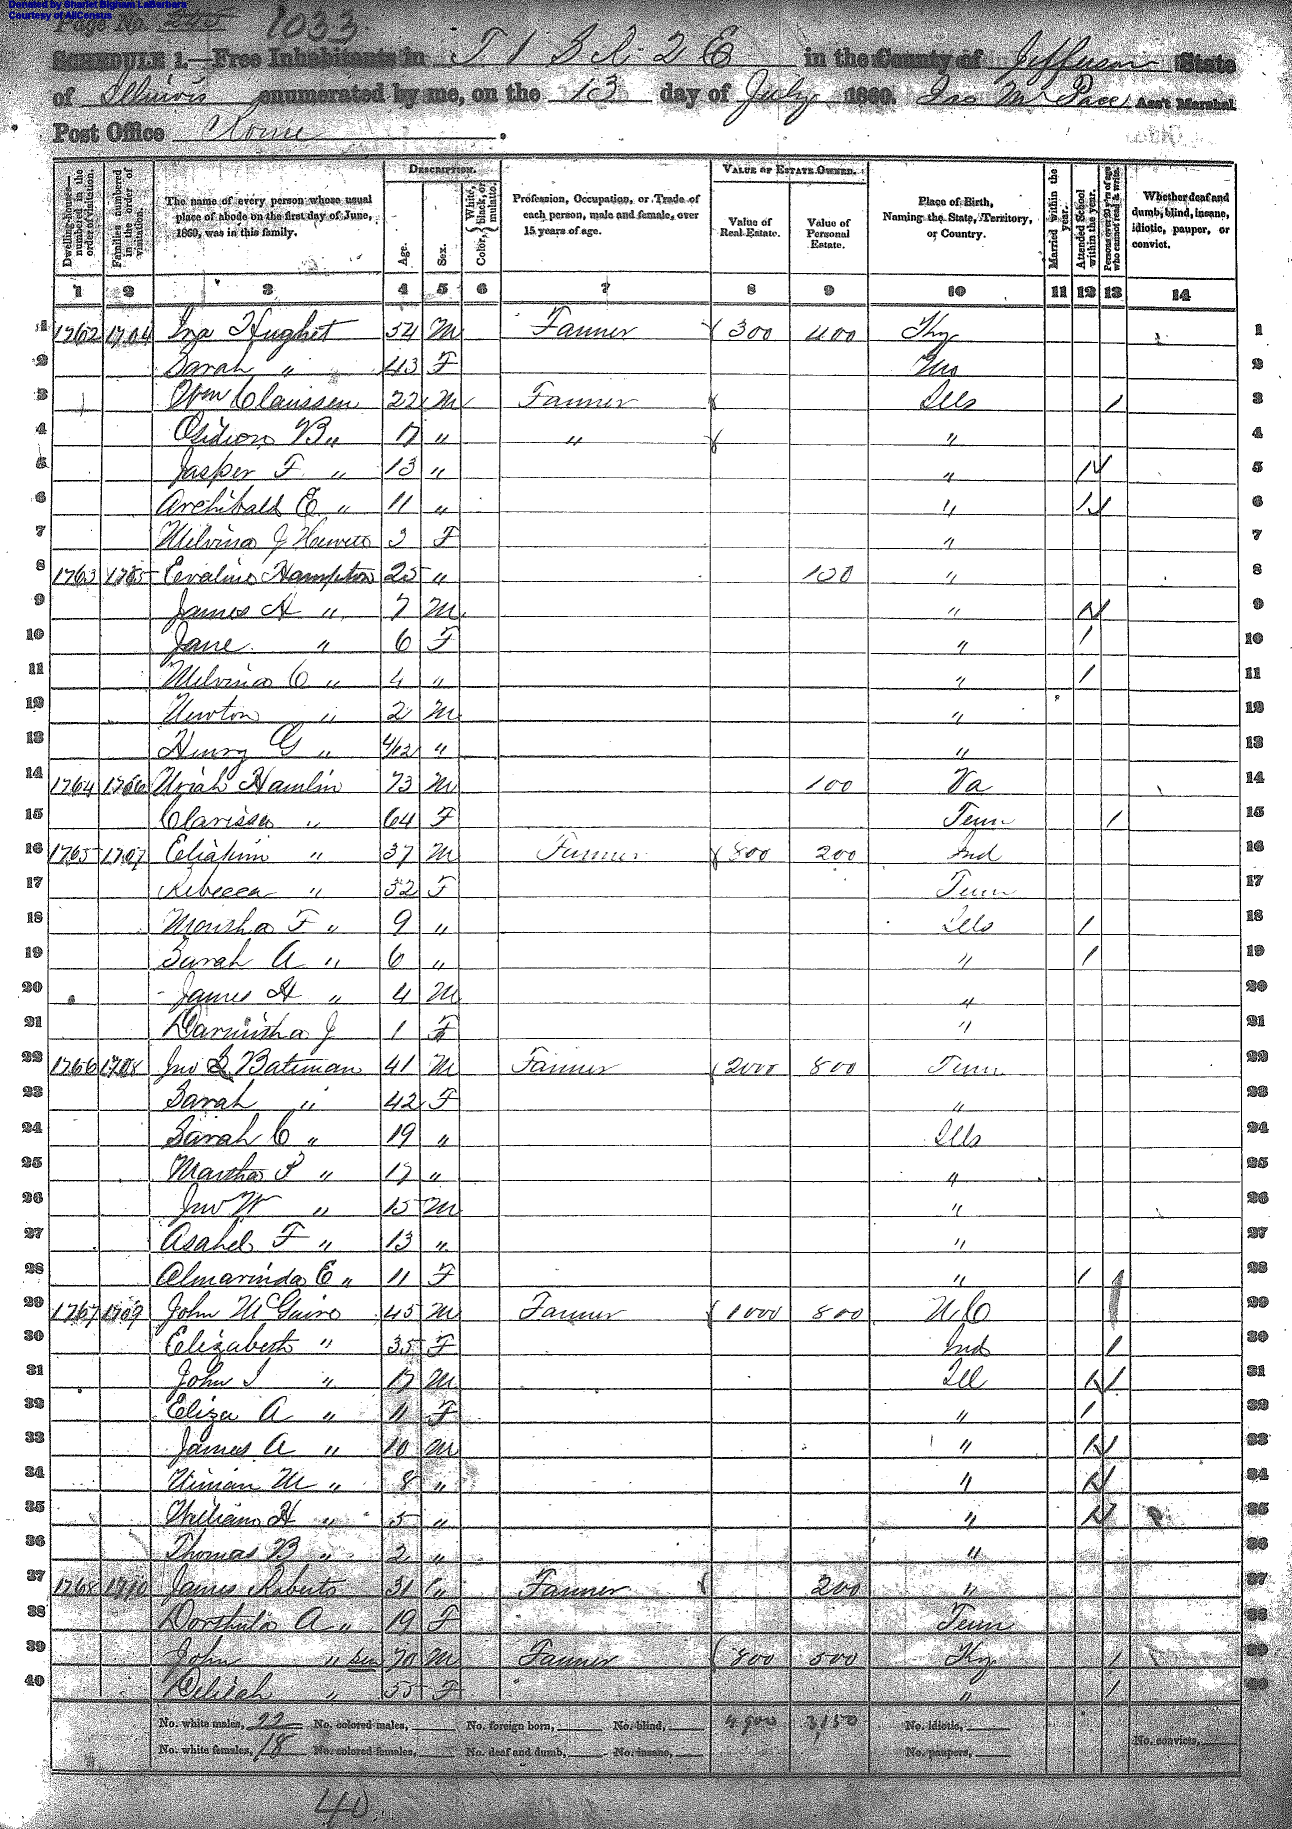 Donated by Sharlet Bigham LaBarbara
Courtesy of AllCensus
Page No. 1033
SCHEDULE 1.—Free Inhabitants in T 1 S R 2 E in the County of Jefferson State
of Illinois enumerated by me, on the 13 day of July 1860. Jno M Pace Ass't Marshal
Post Office Rome.
Dwelling-houses—numbered in the order of visitation.
Families numbered in the order of visitation.
The name of every person whose usual place of abode on the first day of June, 1860, was in this family.
DESCRIPTION.
Age.
Sex.
Color, { White, black, or mulatto. }
Profession, Occupation, or Trade of each person, male and female, over 15 years of age.
VALUE OF ESTATE OWNED.
Value of Real Estate.
Value of Personal Estate.
Place of Birth, Naming the State, Territory, or Country.
Married within the year.
Attended School within the year.
Persons over 20 y'rs of age who cannot read & write.
Whether deaf and dumb, blind, insane, idiotic, pauper, or convict.
1 2 3 4 5 6 7 8 9 10 11 12 13 14
1 1762 1704 Ira Hughet 54 M Farmer 300 400 Ky 1
2 Sarah " 43 F Mo 2
3 Wm Claussen 22 M Farmer Ills / 3
4 B " 17 " " " 4
5 Jasper F " 13 " " 1 5
6 Archibald E " 11 " " 1 6
7 Melvina J 3 F " 7
8 1763 1705 Evaline Hampton 25 " 100 " 8
9 James H " 7 M " 1 9
10 Jane " 6 F " 1 10
11 Melvina C " 4 " " 1 11
12 Newton " 2 M " 12
13 Henry G " 4/12 " " 13
14 1764 1706 Uriah Hamlin 73 M 100 Va 14
15 Clarissa " 64 F Tenn 1 15
16 1765 1707 Eliakim " 37 M Farmer 800 200 Ind 16
17 Rebecca " 32 F Tenn 17
18 Martha F " 9 " Ills 1 18
19 Sarah A " 6 " " 1 19
20 James H " 4 M " 20
21 J 1 F " 21
22 1766 1708 Jno Bateman 41 M Farmer 2000 800 Tenn 22
23 Sarah " 42 F " 23
24 Sarah C " 19 " Ills 24
25 Martha " 17 " " 25
26 Jno W " 15 M " 26
27 Asahel F " 13 " " 27
28 Almarinda E " 11 F " 1 28
29 1767 1709 John McGuire 45 M Farmer 1000 800 N C 29
30 Elizabeth " 35 F Ind 1 30
31 John " 17 M Ill 1 31
32 Eliza A " 11 F " 1 32
33 James A " 10 M " 1 33
34 M " 8 " " 1 34
35 William H " 5 " " 1 35
36 Thomas B " 2 " " 36
37 1768 1710 James Roberts 31 " Farmer 200 " 37
38 A " 19 F Tenn 38
39 John " Sen 70 M Farmer 800 500 Ky 1 39
40 Delilah " 55 F " 1 40
No. white males, 22 No. colored males, No. foreign born, No. blind, 4900 3150 No. idiotic,
No. white females, 18 No. colored females, No. deaf and dumb, No. insane, No. paupers, No. convicts,
40